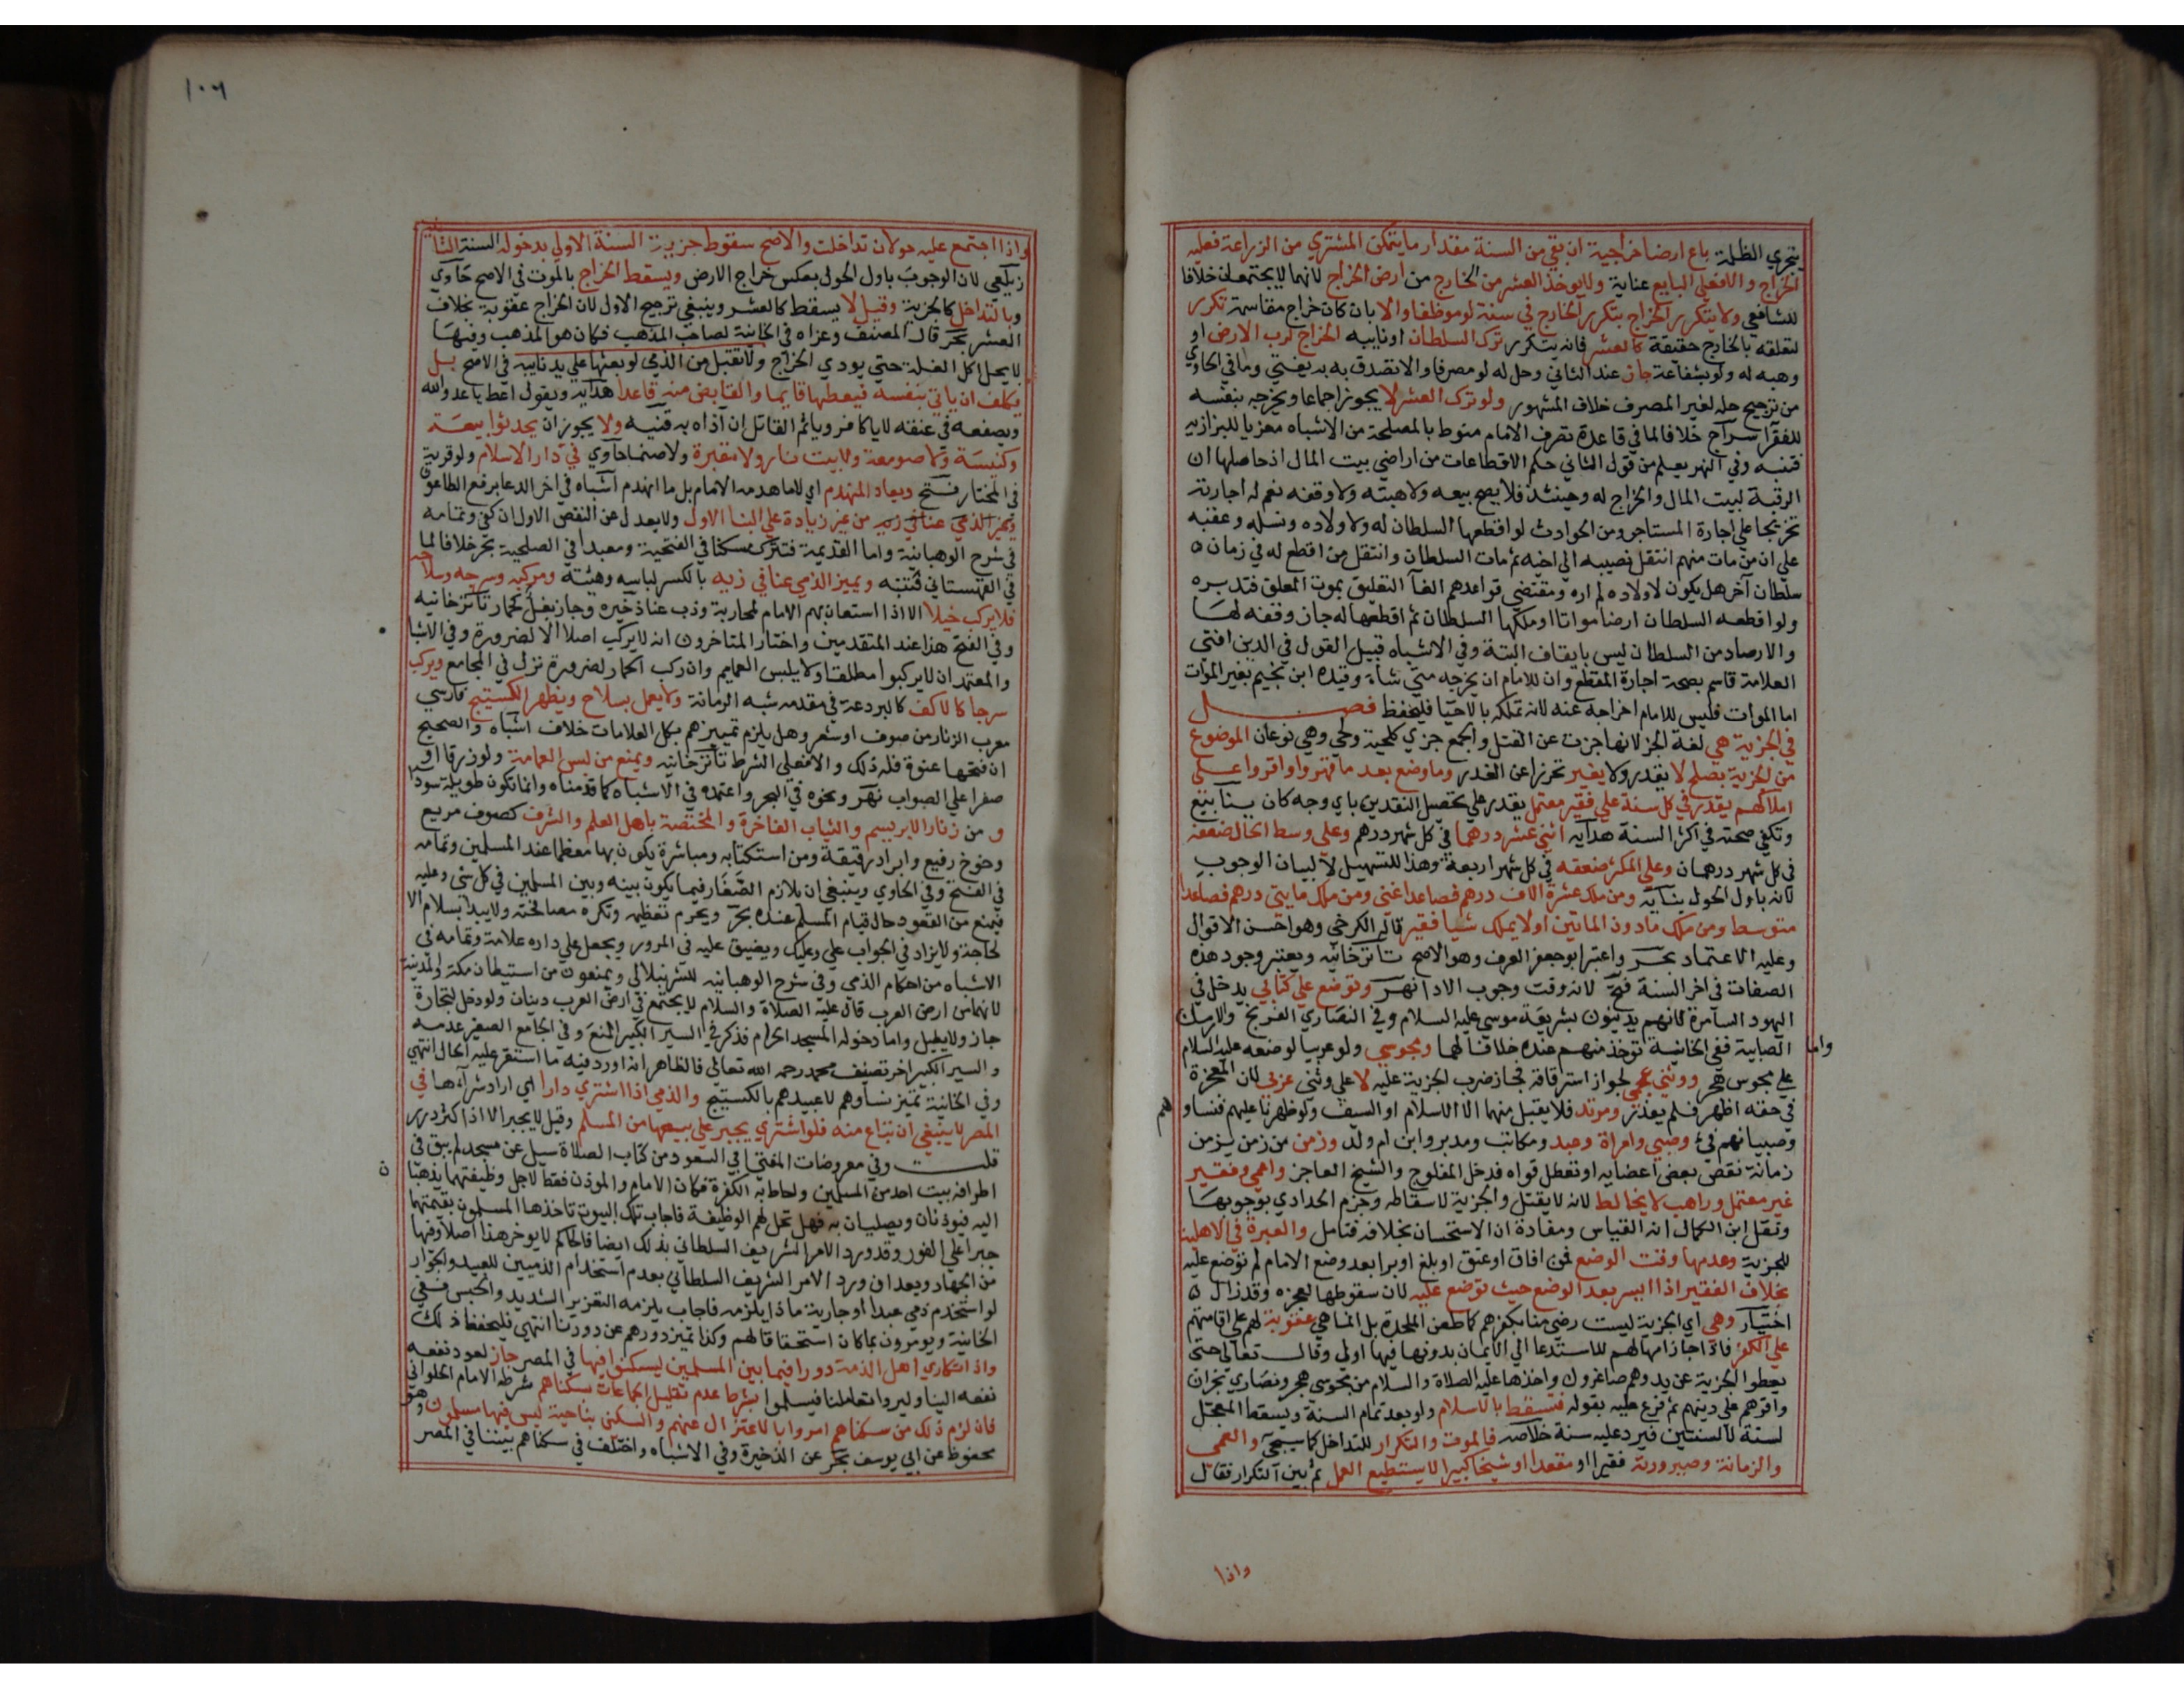 يتجري الظلمة باع ارضا خراجية ان بقي من السنة مقدار ما يتمكن المشتري من الزراعة فعليه
الخراج والا فعلي البايع عناية ولا يوخذ العشر من الخارج من ارض الخراج لانهما لا يجتمعان خلافا
للشافعي ولا يتكرر الخراج بتكرر الخارج في سنة لو موظفا والا بان كان خراج مقاسمة تكرر
لتعلقه بالخارج حقيقة كالعشر فانه يتكرر ترك السلطان او نايبه الخراج لرب الارض او
وهبه له ولو بشفاعة جاز عند الثاني وحل له لو مصرفا والا تصدق به به يفتي وما في الحاوي
من ترجيح حله لغير المصرف خلاف المشهور ولو ترك العشر لا يجوز اجماعا ويخرجه بنفسه
للفقرآ سراج خلافا لما في قاعدة تصرف الامام منوط بالمصلحة من الاشباه معزيا للبزازيه
فتنبه وفي النهر يعلم من قول الثاني حكم الاقطاعات من اراضي بيت المال اذ حاصلها ان
الرقبة لبيت المال والخراج له وحينئذ فلا يصح بيعه ولا هبته ولا وقفه نعم له اجارته
تخريجا علي اجارة المستاجر ومن الحوادث لو اقطعها السلطان له ولاولاده ونسله وعقبه
علي ان من مات منهم انتقل نصيبه الي اخيه ثم مات السلطان وانتقل من اقطع له في زمان
سلطان آخر هل يكون لاولاده لم اره ومقتضي قواعدهم الغآ التعليق بموت المعلق فتدبره
ولو اقطعه السلطان ارضا مواتا او ملكها السلطان ثم اقطعها له جاز وقفه لها
والارصاد من السلطان ليس بايقاف البتة وفي الاشباه قبيل القول في الدين افتي
العلامة قاسم بصحة اجارة المقطع وان للامام ان يخرجه متي شاء وقيده ابن نجيم بغير الموات
اما الموات فليس للامام اخراجه عنه لانه تملكه بالاحيا فليحفظ فصل
في الجزية هي لغة الجزا لانها جزت عن القتل والجمع جزي كلحية ولحي وهي نوعان الموضوع
من الجزية بصلح لا يقدر ولا يغير تحرزا عن الغدر وما وضع بعد ما قهروا واقروا علي
املاكهم يقدر في كل سنة علي فقير معتمل يقدر علي تحصيل النقدين باي وجه كان ينابيع
وتكفي صحته في اكثر السنة هدايه اثني عشر درهما في كل شهر درهم وعلي وسط الحال ضعفه
في كل شهر درهمان وعلي المكثر ضعفه في كل شهر اربعة وهذا للتسهيل لا لبيان الوجوب
لانه باول الحول بنايه ومن ملك عشرة الاف درهم فصاعدا غني ومن ملك مايتي درهم فصاعدا
متوسط ومن ملك ما دون الماتين او لا يملك شيا فقير قاله الكرخي وهو احسن الاقوال
وعليه الاعتماد بحر واعتبر ابو جعفر العرف وهو الاصح تاترخانيه ويعتبر وجود هذه
الصفات في اخر السنة فتح لانه وقت وجوب الادا نهر وتوضع علي كتابي يدخل في
اليهود السامرة لانهم يدينون بشريعة موسي عليه السلام وفي النصاري الفرنج والارمن
واما الصابية ففي الخانية توخذ منهم عنده خلافا لهما ومجوسي ولو عربيا لوضعه عليه السلام
علي مجوس هجر ووثني عجمي لجواز استرقاقه فجاز ضرب الجزية عليه لا علي وثني عربي لان المعجزة
في حقه اظهر فلم يعذر ومرتد فلا يقبل منهما الا الاسلام او السيف ولو ظهرنا عليهم فنساوهم
وصبيانهم فئ وصبي وامراة وعبد ومكاتب ومدبر وابن ام ولد وزمن من زمن يزمن
زمانة نقص بعض اعضايه او تعطل قواه فدخل المفلوج والشيخ العاجز واعمي وفقير
غير معتمل وراهب لا يخالط لانه لا يقتل والجزية لاسقاطه وجزم الحدادي بوجوبها
ونقل ابن الكمال انه القياس ومفادة ان الاستحسان بخلافه فتامل والعبرة في الاهلية
للجزية وعدمها وقت الوضع فمن افاق او عتق او بلغ او برا بعد وضع الامام لم توضع عليه
بخلاف الفقير اذا ايسر بعد الوضع حيث توضع عليه لان سقوطها لعجزه وقد زال
اختيار وهي اي الجزية ليست رضي منا بكفرهم كما طعن الملحدة بل انما هي عقوبة لهم علي اقامتهم
علي الكفر فاذا جاز امهالهم للاستدعا الي الايمان بدونها فبها اولي وقال تعالي حتي
يعطوا الجزية عن يد وهم صاغرون واخذها عليه الصلاة والسلام من مجوسي هجر ونصاري نجران
واقرهم علي دينهم ثم فرع عليه بقوله فتسقط بالاسلام ولو بعد تمام السنة ويسقط المعجل
لسنة لا لسنتين فيرد عليه سنة خلاصه فالموت والتكرار للتداخل كما سيجيء والعمي
والزمانة وصيرورته فقيرا او مقعدا او شيخا كبيرا لا يستطيع العمل ثم بين التكرار فقال
واذا
١٠٦
واذا اجتمع عليه حولان تداخلت والاصح سقوط جزية السنة الاولي بدخول السنة الثانية
زيلعي لان الوجوب باول الحول بعكس خراج الارض ويسقط الخراج بالموت في الاصح حاوي
وبالتداخل كالجزية وقيل لا يسقط كالعشر وينبغي ترجيح الاول لان الخراج عقوبة بخلاف
العشر بحر قال المصنف وعزاه في الخانية لصاحب المذهب فكان هو المذهب وفيها
لا يحل اكل الغلة حتي يودي الخراج ولا تقبل من الذمي لو بعثها علي يد نايبه في الاصح بل
يكلف ان ياتي بنفسه فيعطيها قايما والقابض منه قاعدا هدايه ويقول اعط يا عدو الله
ويصفعه في عنقه لا يا كافر وياثم القاتل ان آذاه به قنيه ولا يجوز ان يحدثوا بيعة
وكنيسة ولا صومعة ولا بيت نار ولا مقبرة ولا صنما حاوي في دار الاسلام ولو قرية
في المختار فتح ويعاد المنهدم اي لا ما هدمه الامام بل ما انهدم اشباه في اخر الدعا برفع الطاعون
من غير زيادة علي البنا الاول ولا يعدل عن النقض الاول ان كفي وتمامه
في شرح الوهبانية واما القديمة فتترك مسكنا في الفتحية ومعبدا في الصلحية بحر خلافا لما
في القهستاني فتنبه ويميز الذمي عنا في زيه بالكسر لباسه وهيئته ومركبه وسرجه وسلاحه
فلا يركب خيلا الا اذا استعان بهم الامام لمحاربة وذب عنا ذخيره وجاز بغل كحمار تاترخانيه
وفي الفتح هذا عند المتقدمين واختار المتاخرون انه لا يركب اصلا الا لضرورة وفي الاشباه
والمعتمد ان لا يركبوا مطلقا ولا يلبس العمايم وان ركب الحمار لضرورة نزل في المجامع ويركب
سرجا كالاكف كالبردعة في مقدمه شبه الرمانة ولا يعمل بسلاح ويظهر الكستيج فارسي
معرب الزنار من صوف او شعر وهل يلزم تمييزهم بكل العلامات خلاف اشباه والصحيح
ان فتحها عنوة فله ذلك والا فعلي الشرط تاترخانيه ويمنع من لبس العمامة ولو زرقا او
صفرا علي الصواب نهر ونحوه في البحر واعتمده في الاشباه كما قدمناه وانما تكون طويلة سودا
و من زنار الابريسم والثياب الفاخرة والمختصة باهل العلم والشرف كصوف مربع
وجوخ رفيع وابراد رقيقة ومن استكتابه ومباشرة يكون بها معظما عند المسلمين وتمامه
في الفتح وفي الحاوي وينبغي ان يلازم الصغار فيما يكون بينه وبين المسلمين في كل شي وعليه
فيمنع من القعود حال قيام المسلم عنده بحر ويحرم تعظيمه وتكره مصافحته ولا يبدا بسلام الا
لحاجة ولا يزاد في الجواب علي وعليك ويضيق عليه في المرور ويجعل علي داره علامة وتمامه في
الاشباه من احكام الذمي وفي شرح الوهبانيه للشرنبلالي ويمنعون من استيطان مكة والمدينة
لانهما من ارض العرب قال عليه الصلاة والسلام لا يجتمع في ارض العرب دينان ولو دخل لتجارة
جاز ولا يطيل واما دخوله المسجد الحرام فذكر في السير الكبير المنع وفي الجامع الصغير عدمه
والسير الكبير اخر تصنيف محمد رحمه الله تعالي فالظاهر انه اورد فيه ما استقر عليه الحال انتهي
وفي الخانية تميز نساوهم لا عبيدهم بالكستيج والذمي اذا اشتري دارا اي اراد شراءها في
المصر لا ينبغي ان تباع منه فلو اشتري يجبر علي بيعها من المسلم وقيل لا يجبر الا اذا كثر درر
قلت وفي معروضات المفتي ابي السعود من كتاب الصلاة سيل عن مسجد لم يبق في
اطرافه بيت احد من المسلمين واحاط به الكفرة فكان الامام والموذن فقط لاجل وظيفتهما يذهبان
اليه فيوذنان ويصليان به فهل تحل لهم الوظيفة فاجاب تلك البيوت تاخذها المسلمون بقيمتها
جبرا علي الفور وقد ورد الامر الشريف السلطاني بذلك ايضا فالحاكم لا يوخر هذا اصلا وفيها
من الجهاد وبعد ان ورد الامر الشريف السلطاني بعدم استخدام الذميين للعبيد والجوار
لو استخدم ذمي عبدا او جارية ماذا يلزمه فاجاب يلزمه التعزير الشديد والحبس ففي
الخانية ويومرون بما كان استحقاقا لهم وكذا تميز دورهم عن دورنا انتهي فليحفظ ذلك
واذا تكاري اهل الذمة دورا فيما بين المسلمين ليسكنوا فيها في المصر جاز لعود نفعه
نفعه الينا وليروا تعاملنا فيسلموا بشرط عدم تقليل الجماعات سكناهم شرطه الامام الحلواني
فان لزم ذلك من سكناهم امروا بالاعتزال عنهم والسكني بناحية ليس فيها مسلمون وهو
محفوظ عن ابي يوسف بحر عن الذخيرة وفي الاشباه واختلف في سكناهم بيننا في المصر